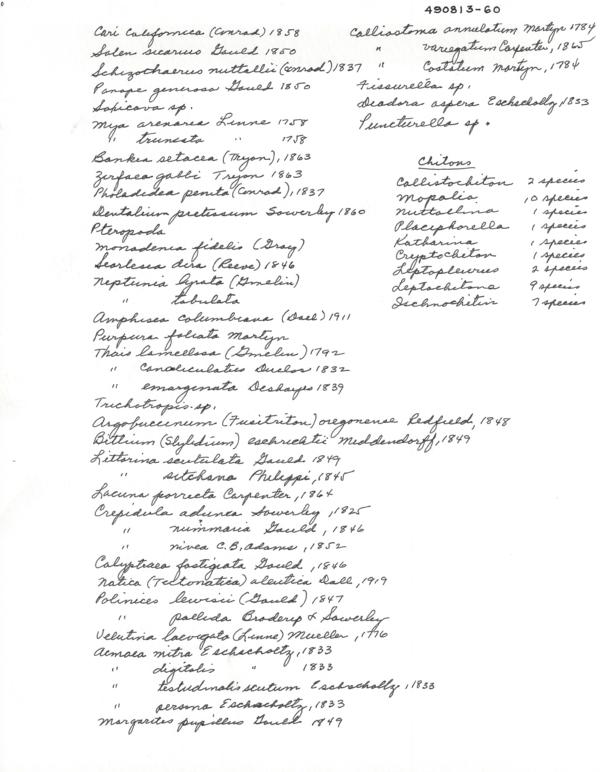 490813-60
Cari Californica (Conrad) 1858
Solen sicarius Gould 1850
Schizothaerus nuttallii (Conrad) 1837
Panope generosa Gould 1850
Saxicava sp.
Mya arenaria Linne 1758
" truncata " 1758
Bankea setacea (Tryon), 1863
Zirfaea gabbi Tryon 1863
Pholadidea penita (Conrad), 1837
Dentalium pretiosum Sowerby 1860
Pteropoda
Monadenia fidelis (Gray)
Searlesia dira (Reeve) 1846
Neptunia lyrata (Gmelin)
" tabulata
Amphissa columbiana (Dall) 1911
Purpura foliata Martyn
Thais lamellosa (Gmelin) 1792
" canaliculatus Duclos 1832
" emarginata Deshayes 1839
Trichotropis sp.
Argobuccinum (Fusitriton) oregonense Redfield, 1848
Bittium (Stylidium) eschrichtii Middendorff, 1849
Littorina scutulata Gould 1849
" sitchana Philippi, 1845
Lacuna porrecta Carpenter, 1864
Crepidula adunca Sowerby, 1825
" nummaria Gould, 1846
" nivea C.B. Adams, 1852
Calyptraea fastigiata Gould, 1846
Natica (Tectonatica) aleutica Dall, 1919
Polinices lewisii (Gould) 1847
" pallida Broderip & Sowerby
Velutina laevogata (Linne) Mueller, 1776
Acmaea mitra Eschscholtz, 1833
" digitalis " 1833
" testudinalis scutum Eschscholtz, 1833
" persona Eschscholtz, 1833
Margarites pupillus Gould 1849
Calliostoma annulatum Martyn 1784
" variegatum Carpenter, 1865
" Costatum Martyn, 1784
Fissurella sp.
Diadora aspera Eschscholtz, 1833
Puncturella sp.
Chitons
Callistochiton 2 species
Mopalia 10 species
Nuttallina 1 species
Placiphorella 1 species
Katharina 1 species
Cryptochiton 1 species
Leptopleurus 2 species
Leptochitona 9 species
Ischnochitin 7 species